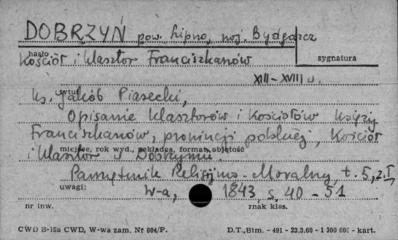 DOBRZYŃ pow. Lipno, woj. Bydgoszcz
hasło
Kościół i klasztor Franciszkanów
sygnatura
XIII-XVIII w.
Ks. Jakób Piasecki,
Opisanie klasztorów i kościołów księży
Franciszkanów, prowincji polskiej, Kościół
miejsce, rok wyd., nakładca, format, objętość
i klasztor w Dobrzyniu.
Pamiętnik Religijno-Moralny t. 5, z. I,
uwagi:
W-a, 1843, s. 40-51
nr inw.
znak klas.
CWD B-16a CWD, W-wa zam. Nr 604/P.
D.T., Bim. - 491 - 23.3.60 - 1 300 000 - kart.